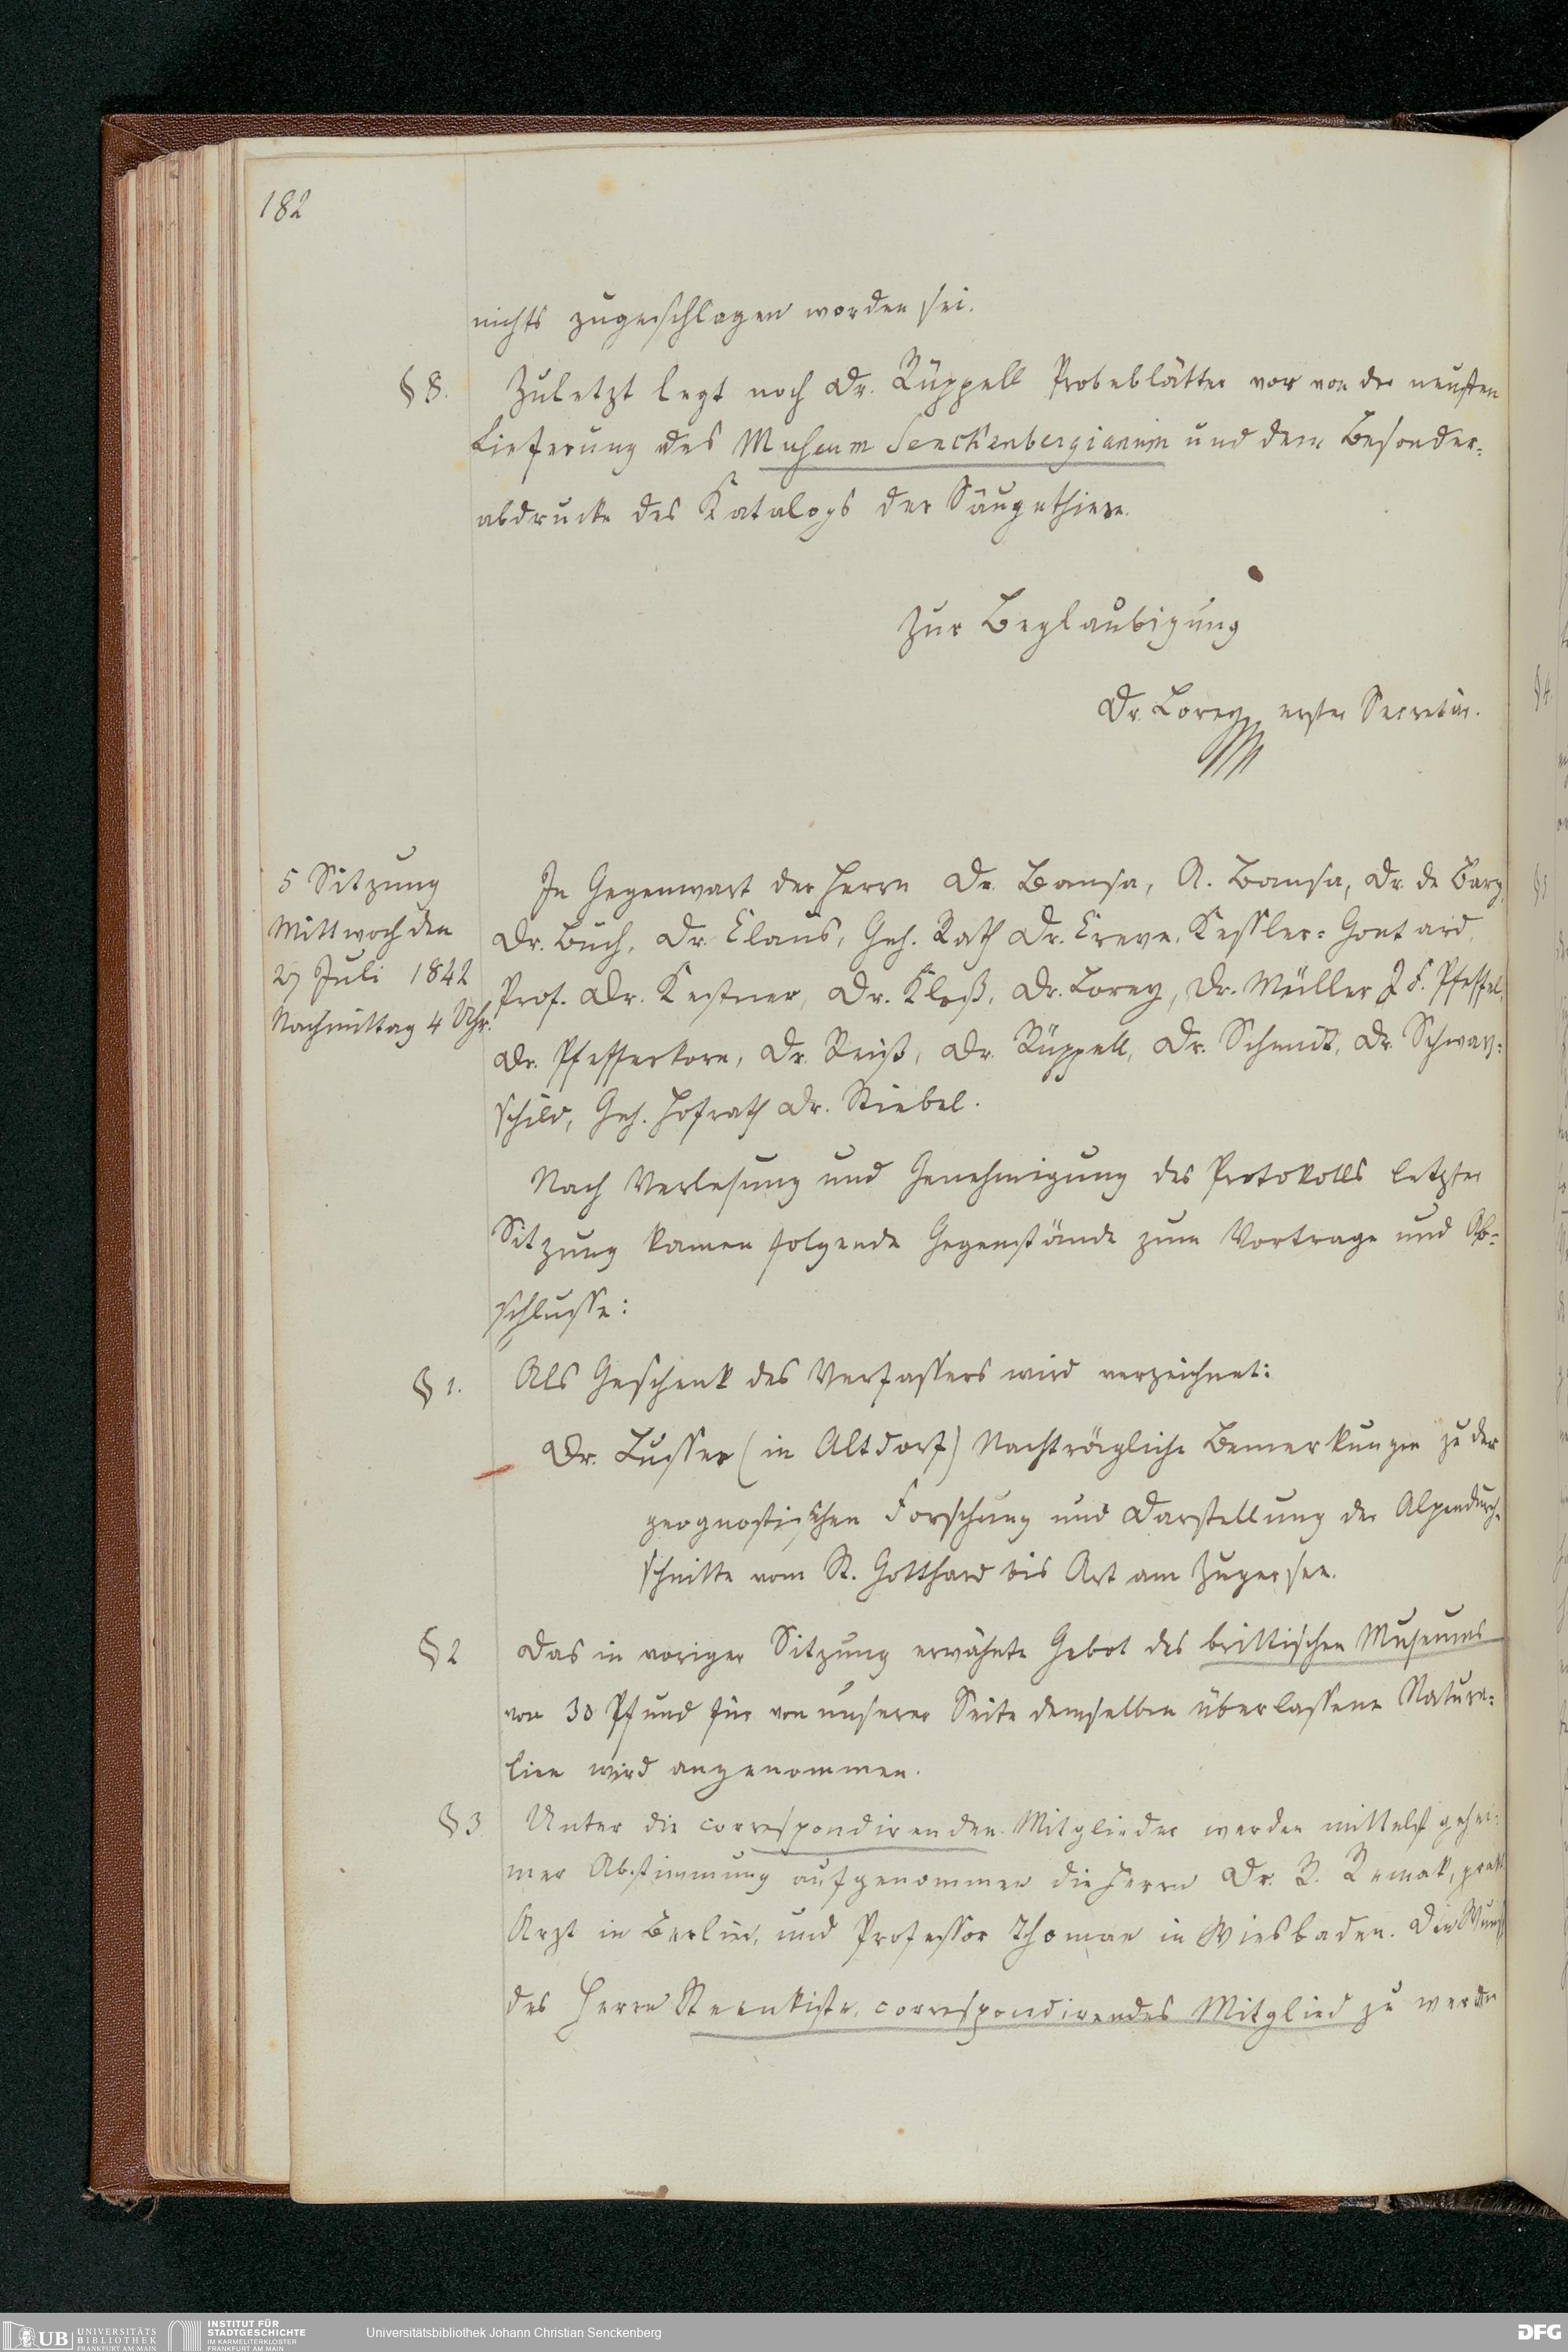 182
nichts zugeschlagen worden sei.
§ 8. Zuletzt legt noch Dr. Rüppell Probeblätter vor von der neusten
Lieferung des Museum Senckenbergianum und dem Besonder-
abdrucke des Katalogs der Säugethiere.
Zur Beglaubigung
Dr. Lorey erster Secretär.
5 Sitzung
Mittwoch den
27 Juli 1842
Nachmittag 4 Uhr.
In Gegenwart der Herrn Dr. Bansa, A. Bansa, Dr. de Bary,
Dr. Buch, Dr. Claus, Geh. Rath Dr. Creve, Kessler-Gontard,
Prof. Dr. Kestner, Dr. Kloß, Dr. Lorey, Dr. Müller J. F. Pfeffel,
Dr. Pfefferkorn, Dr. Reuß, Dr. Rüppell, Dr. Schmidt, Dr. Schwarz-
schild, Geh. Hofrath Dr. Stiebel.
Nach Verlesung und Genehmigung des Protokolls letzter
Sitzung kamen folgende Gegenstände zum Vortrage und Ab-
schlusse:
§ 1. Als Geschenk des Verfassers wird verzeichnet:
Dr. Lusser (in Altdorf) Nachträgliche Bemerkungen zu der
geognostischen Forschung und Darstellung der Alpendurch-
schnitte vom St. Gotthard bis Art am Zugersee.
§ 2 Das in voriger Sitzung erwähnte Gebot des brittischen Museums
von 30 Pfund für von unserer Seite demselben überlassene Natura-
lien wird angenommen.
§ 3 Unter die correspondirenden Mitglieder werden mittelst gehei-
mer Abstimmung aufgenommen die Herrn Dr. R. Remak, prakt
Arzt in Berlin, und Professor Thomae in Wiesbaden. Der Wunsch
des Herrn correspondirendes Mitglied zu werden
UB UNIVERSITÄTS
BIBLIOTHEK
FRANKFURT AM MAIN
INSTITUT FÜR
STADTGESCHICHTE
IM KARMELITERKLOSTER
FRANKFURT AM MAIN
Universitätsbibliothek Johann Christian Senckenberg
DFG